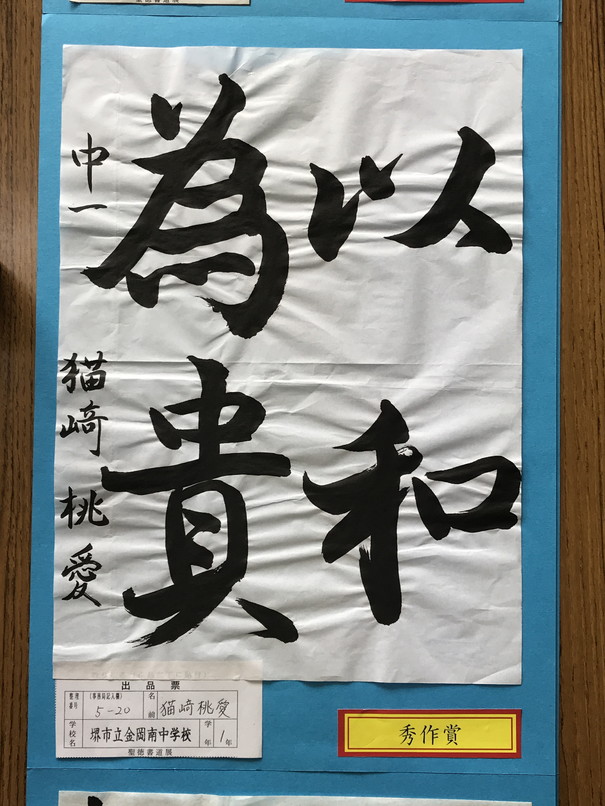 以和
為貴
中一 猫﨑桃愛
出品票
整理番号
(事務局記入欄)
5-20
名前
猫﨑桃愛
学校名
堺市立金岡南中学校
学年
1年
聖徳書道展
秀作賞